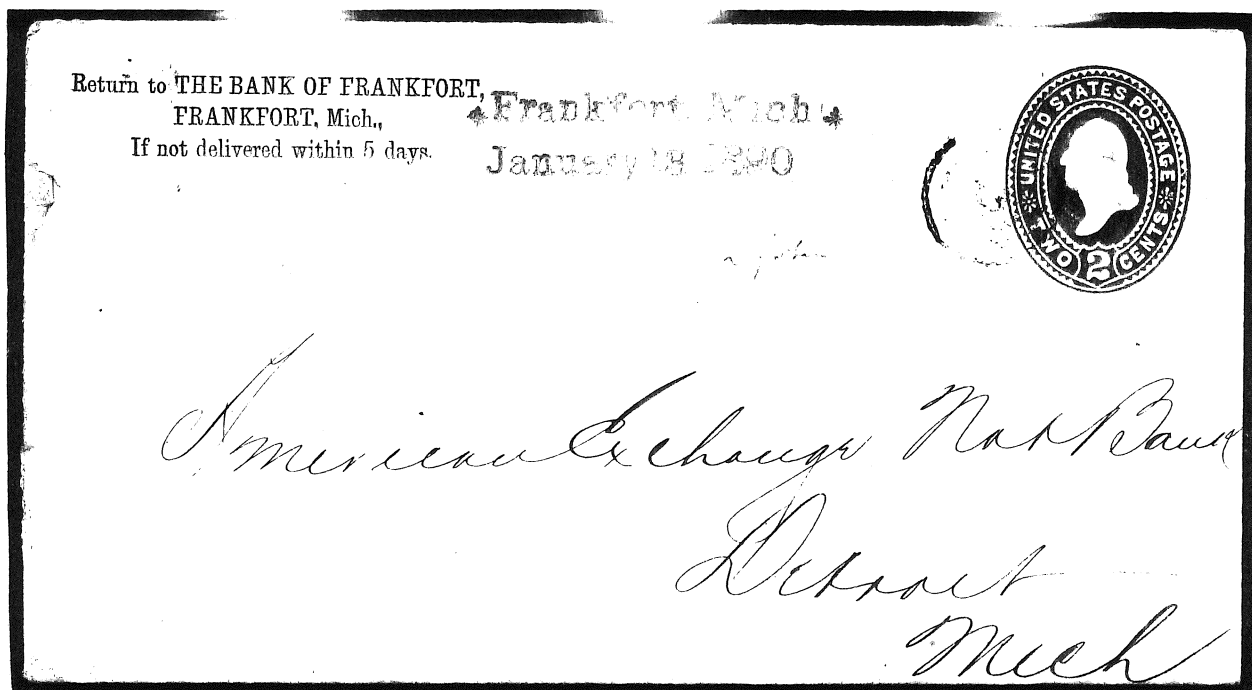 Return to THE BANK OF FRANKFORT,
FRANKFORT, Mich.,
If not delivered within 5 days.
Frankfort Mich
January 18 1890
UNITED STATES POSTAGE
TWO 2 CENTS
American Exchange Nat Bank
Detroit
Mich